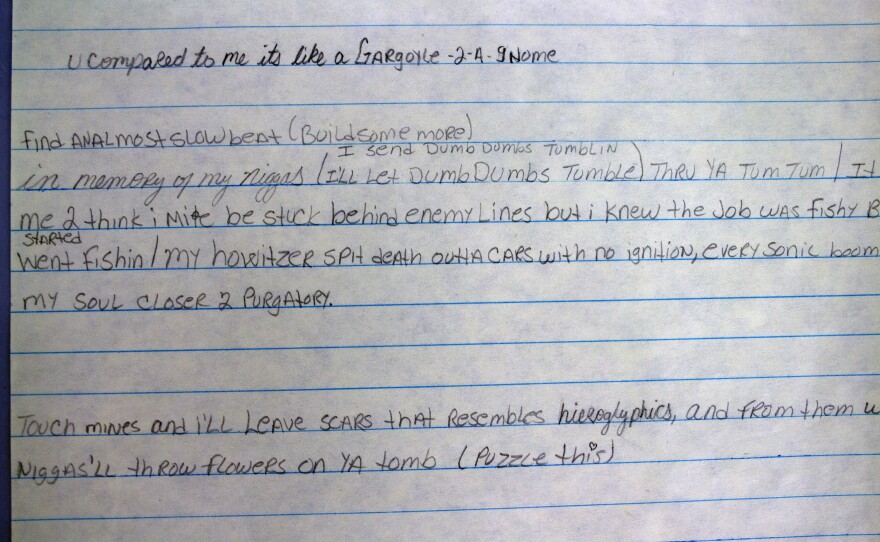 U Compared to me its like a GARgoyle -2-A-gNome
find AN ALmost SLOW beat (Build some more)
I send Dumb Dumbs TumbLIN
in memory of my niggas (I'LL Let DumbDumbs Tumble) THRU YA Tum Tum / It
me 2 think i Mite be stuck behind enemy Lines but i knew the Job was fishy B
StARted
went fishin / my howitzer spit death outta CARS with no ignition, every sonic boom
my soul closer 2 PURgAtORY.
Touch mines and i'LL Leave SCARS that Resembles hieroglyphics, and fROm them u
NiggAs'LL thRow fLoweRs on YA tomb (Puzzle this)